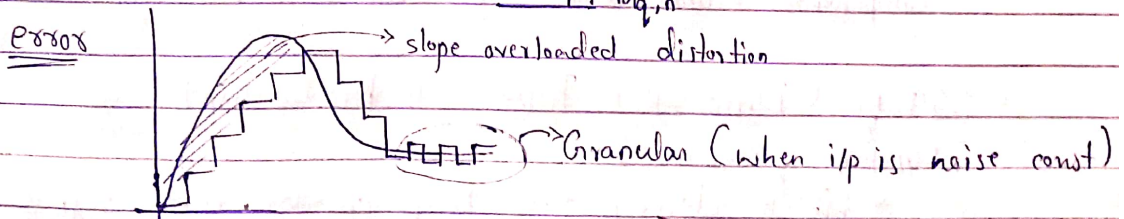 error
slope overloaded distortion
Granular (when i/p is noise const)